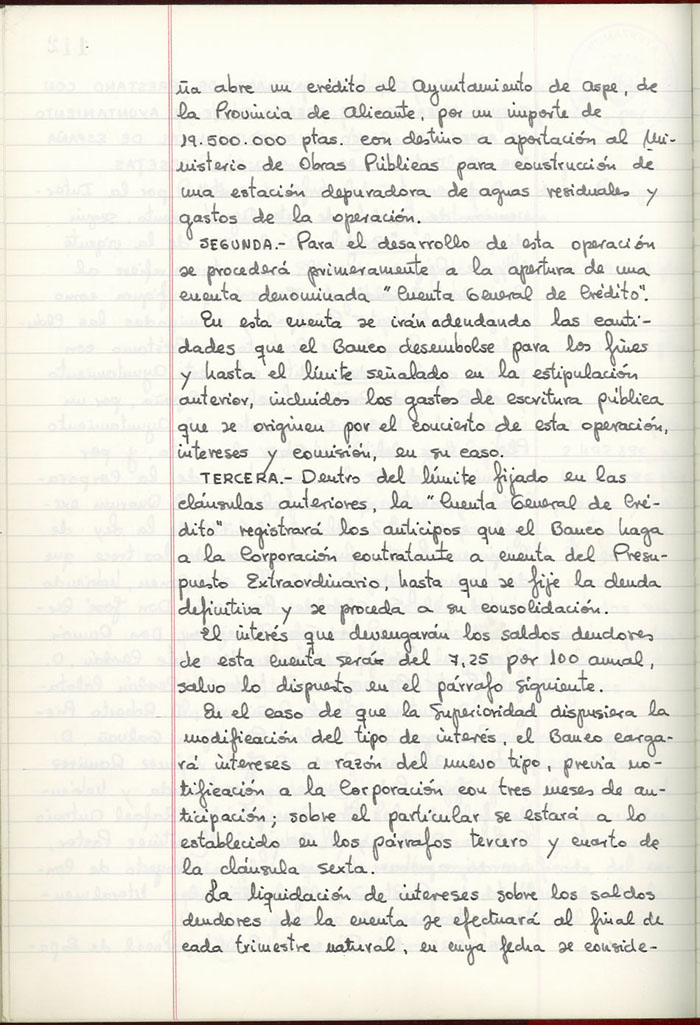 ña abre un crédito al Ayuntamiento de Aspe, de
la Provincia de Alicante, por un importe de
19.500.000 ptas. con destino a aportación al Mi-
nisterio de Obras Públicas para construcción de
una estación depuradora de aguas residuales y
gastos de la operación.
SEGUNDA.- Para el desarrollo de esta operación
se procederá primeramente a la apertura de una
cuenta denominada "Cuenta General de Crédito".
En esta cuenta se irán adendando las canti-
dades que el Banco desembolse para los fines
y hasta el límite señalado en la estipulación
anterior, incluídos los gastos de escritura pública
que se originen por el concierto de esta operación,
intereses y comisión, en su caso.
TERCERA.- Dentro del límite fijado en las
cláusulas anteriores, la "Cuenta General de Cré-
dito" registrará los anticipos que el Banco haga
a la Corporación contratante a cuenta del Presu-
puesto Extraordinario, hasta que se fije la deuda
definitiva y se proceda a su consolidación.
El interés que devengarán los saldos deudores
de esta cuenta será del 7,25 por 100 anual,
salvo lo dispuesto en el párrafo siguiente.
En el caso de que la Superioridad dispusiera la
modificación del tipo de interés, el Banco carga-
rá intereses a razón del nuevo tipo, previa no-
tificación a la Corporación con tres meses de an-
ticipación; sobre el particular se estará a lo
establecido en los párrafos tercero y cuarto de
la cláusula sexta.
La liquidación de intereses sobre los saldos
deudores de la cuenta se efectuará al final de
cada trimestre natural, en cuya fecha se conside-